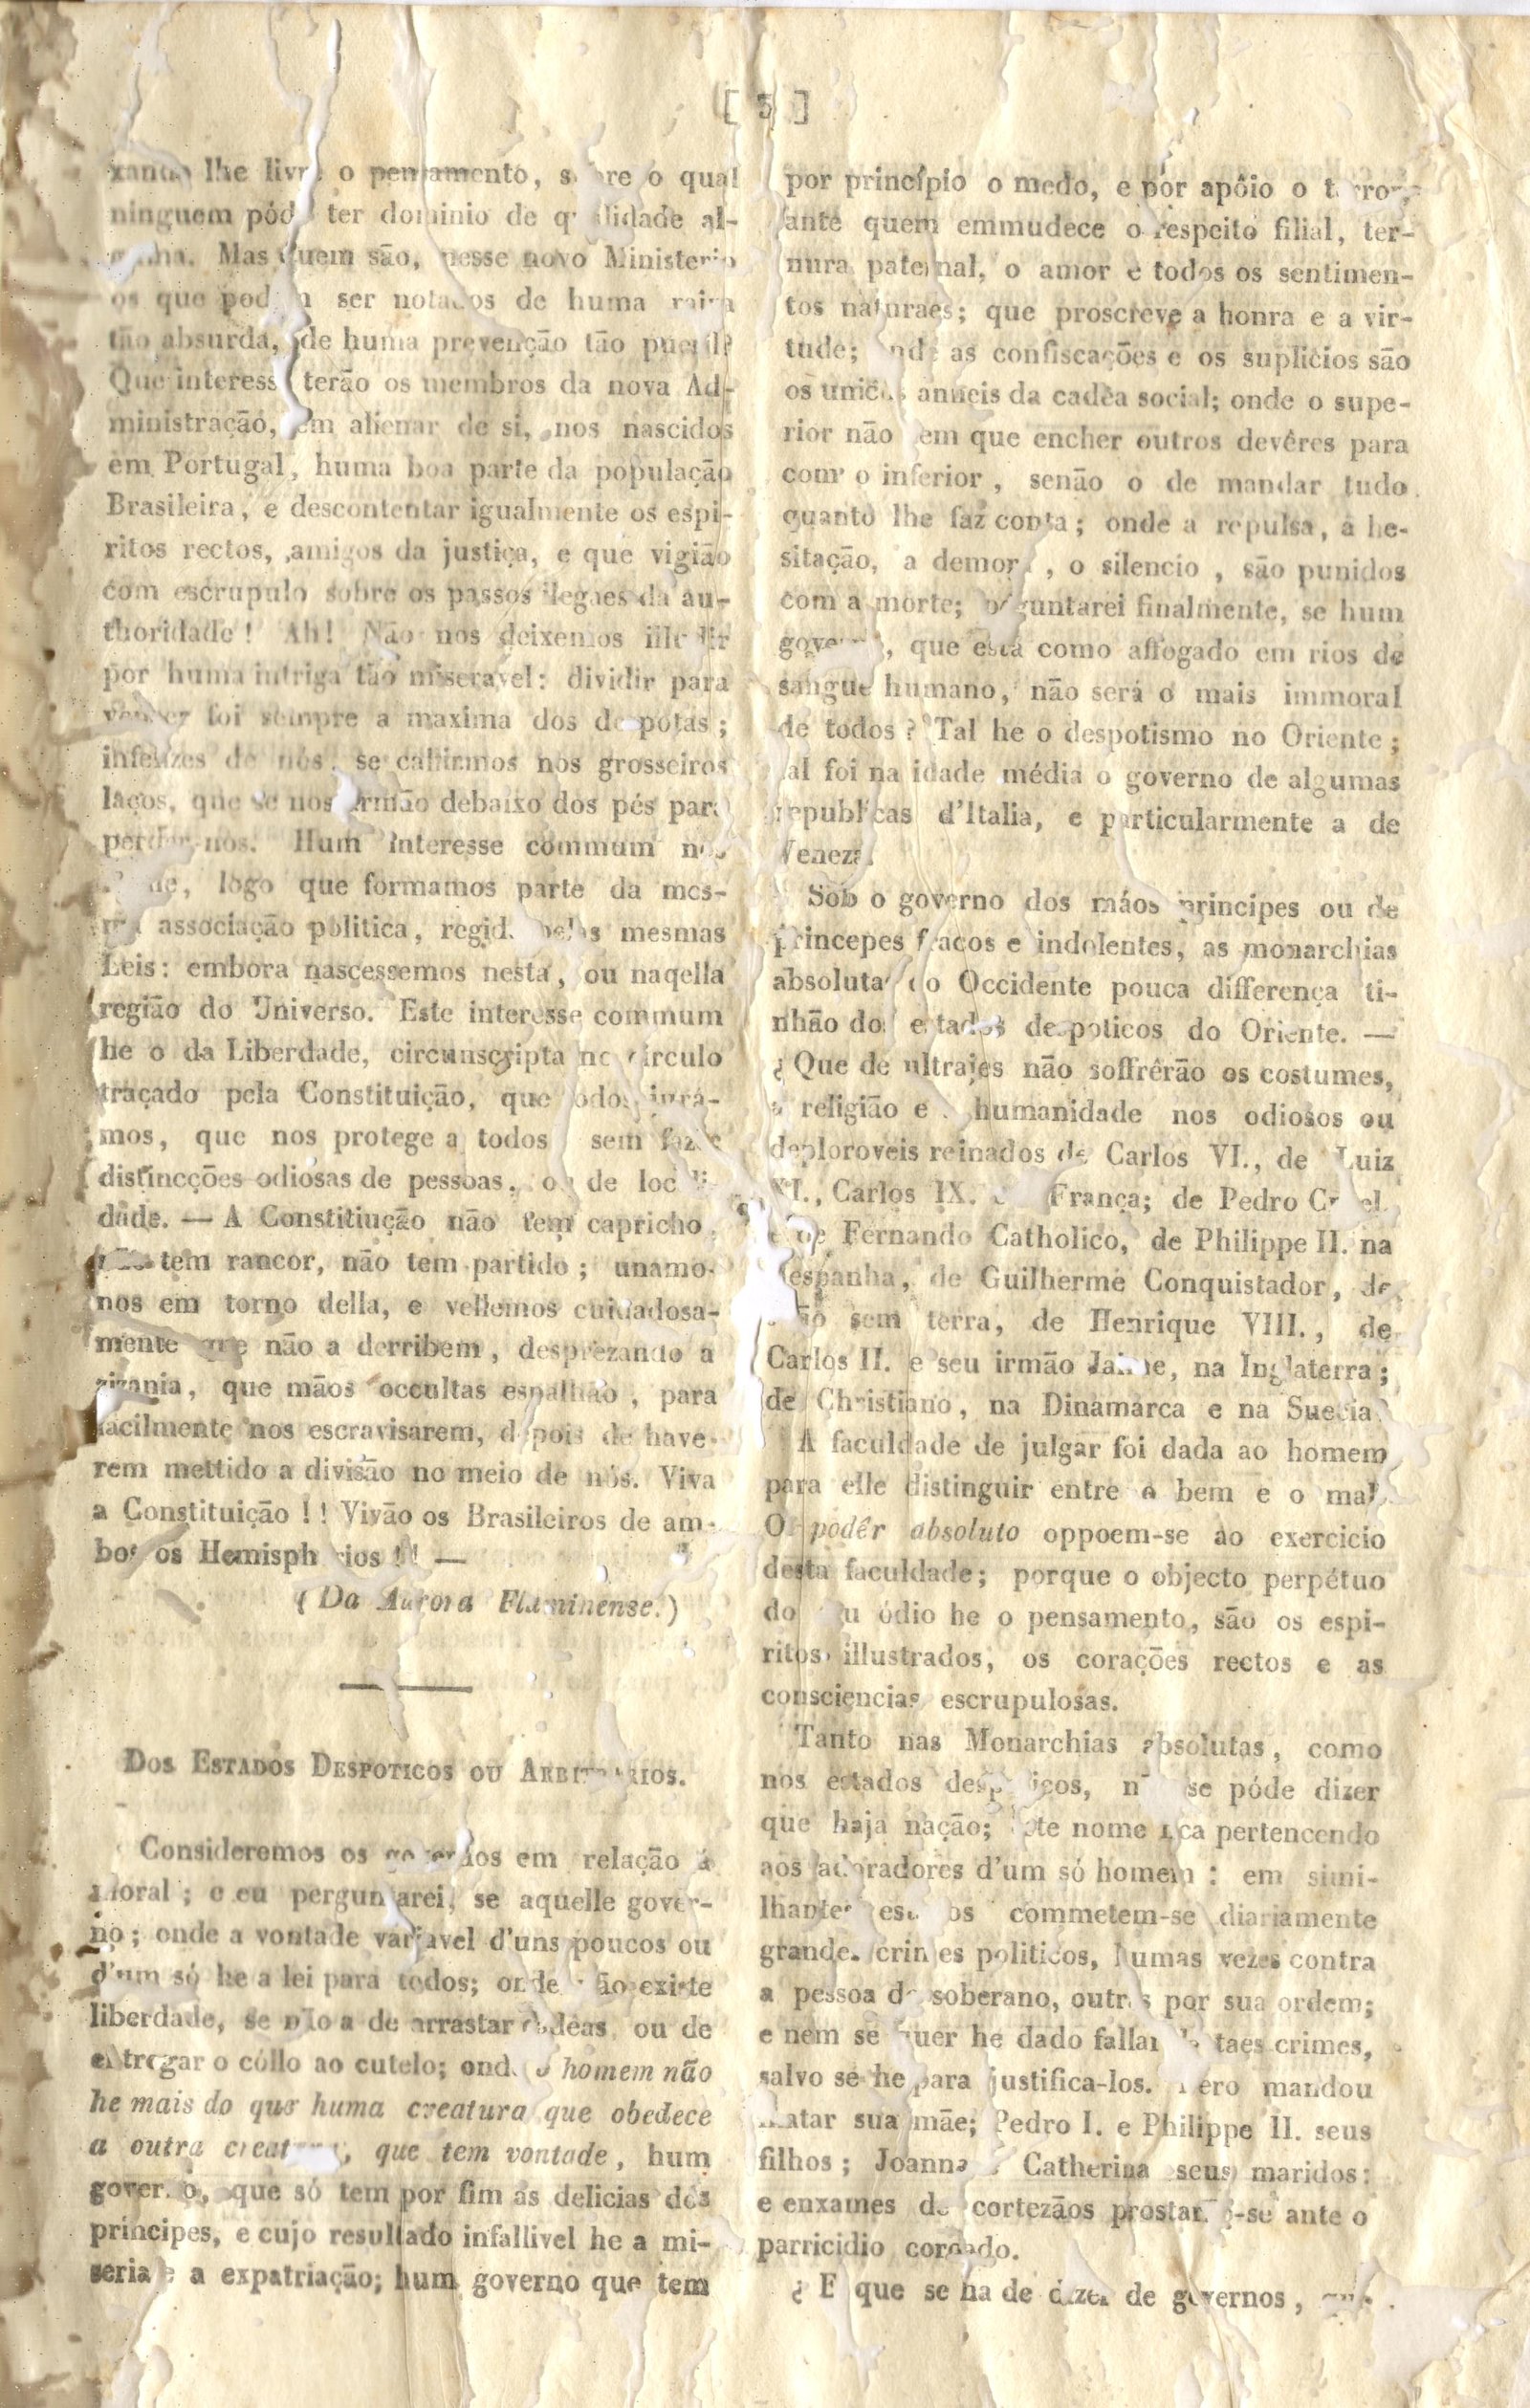 [ 5 ]
lhe o pensamento, o qual
ninguem ter dominio de al-
Mas quem são, nesse novo Ministerio
os que ser notados de huma
tão absurda, de huma prevenção tão pueril?
Que terão os membros da nova Ad-
ministração, em alienar de si, nos nascidos
em Portugal, huma boa parte da população
Brasileira, e descontentar igualmente os espi-
ritos rectos, amigos da justiça, e que vigião
com escrupulo sobre os passos illegaes da au-
thoridade! Ah! Não nos deixemos illudir
por huma intriga tão miseravel: dividir para
vencer foi sempre a maxima dos despotas;
infelizes de nós, se cahirmos nos grosseiros
laços, que se nos armão debaixo dos pés para
perder-nos. Hum interesse commum nos
logo que formamos parte da mes-
ma associação politica, regida pelas mesmas
Leis: embora nascessemos nesta, ou naqella
região do Universo. Este interesse commum
he o da Liberdade, circunscripta no circulo
traçado pela Constituição, que todos jurá-
mos, que nos protege a todos sem fazer
distincções odiosas de pessoas, ou de locali-
dade. — A Constitiução não tem capricho,
não tem rancor, não tem partido; unamo-
nos em torno della, e vellemos cuidadosa-
mente que não a derribem, desprezando a
zizania, que mãos occultas espalhão, para
facilmente nos escravisarem, depois de have-
rem mettido a divisão no meio de nós. Viva
a Constituição!! Vivão os Brasileiros de am-
bos os Hemispherios!!! —
(Da Aurora Fluminense.)
DOS ESTADOS DESPOTICOS OU ARBITRARIOS.
Consideremos os governos em relação á
moral; e eu perguntarei, se aquelle gover-
no; onde a vontade variavel d'uns poucos ou
d'um só he a lei para todos; onde não existe
liberdade, se não a de arrastar cadêas, ou de
entregar o cóllo ao cutelo; onde o homem não
he mais do que huma creatura que obedece
a outra creatura, que tem vontade, hum
governo, que só tem por fim as delicias dos
príncipes, e cujo resultado infallivel he a mi-
seria e a expatriação; hum governo que tem
por princípio o medo, e por apôio o terror,
ante quem emmudece o respeito filial, ter-
nura paternal, o amor e todos os sentimen-
tos naturaes; que proscreve a honra e a vir-
tude; onde as confiscações e os suplicios são
os unicos anneis da cadêa social; onde o supe-
rior não tem que encher outros devêres para
com o inferior, senão o de mandar tudo
quanto lhe faz conta; onde a repulsa, a he-
sitação, a demora, o silencio, são punidos
com a morte; perguntarei finalmente, se hum
governo, que está como affogado em rios de
sangue humano, não será o mais immoral
de todos? Tal he o despotismo no Oriente;
tal foi na idade média o governo de algumas
republicas d'Italia, e particularmente a de
Veneza.
Sob o governo dos máos principes ou de
princepes fracos e indolentes, as monarchias
absolutas do Occidente pouca differença ti-
nhão dos estados despoticos do Oriente. —
¿ Que de ultrajes não soffrêrão os costumes,
a religião e a humanidade nos odiosos ou
deploroveis reinados de Carlos VI., de Luiz
XI., Carlos IX. em França; de Pedro Cruel,
de Fernando Catholico, de Philippe II. na
Hespanha, de Guilherme Conquistador, de
João sem terra, de Henrique VIII., de
Carlos II. e seu irmão Jaime, na Inglaterra;
de Christiano, na Dinamarca e na Suecia?
A faculdade de julgar foi dada ao homem
para elle distinguir entre o bem e o mal.
O podêr absoluto oppoem-se ao exercicio
desta faculdade; porque o objecto perpétuo
do seu ódio he o pensamento, são os espi-
ritos illustrados, os corações rectos e as
consciencias escrupulosas.
Tanto nas Monarchias absolutas, como
nos estados despoticos, não se póde dizer
que haja nação; este nome fica pertencendo
aos adoradores d'um só homem: em simi-
lhantes estados commetem-se diariamente
grandes crimes politicos, humas vezes contra
a pessoa do soberano, outras por sua ordem;
e nem se quer he dado fallar de taes crimes,
salvo se he para justifica-los. Nero mandou
matar sua mãe; Pedro I. e Philippe II. seus
filhos; Joanna e Catherina seus maridos:
e enxames de cortezãos prostarão-se ante o
parricidio coroado.
¿ E que se ha de dizer de governos, que